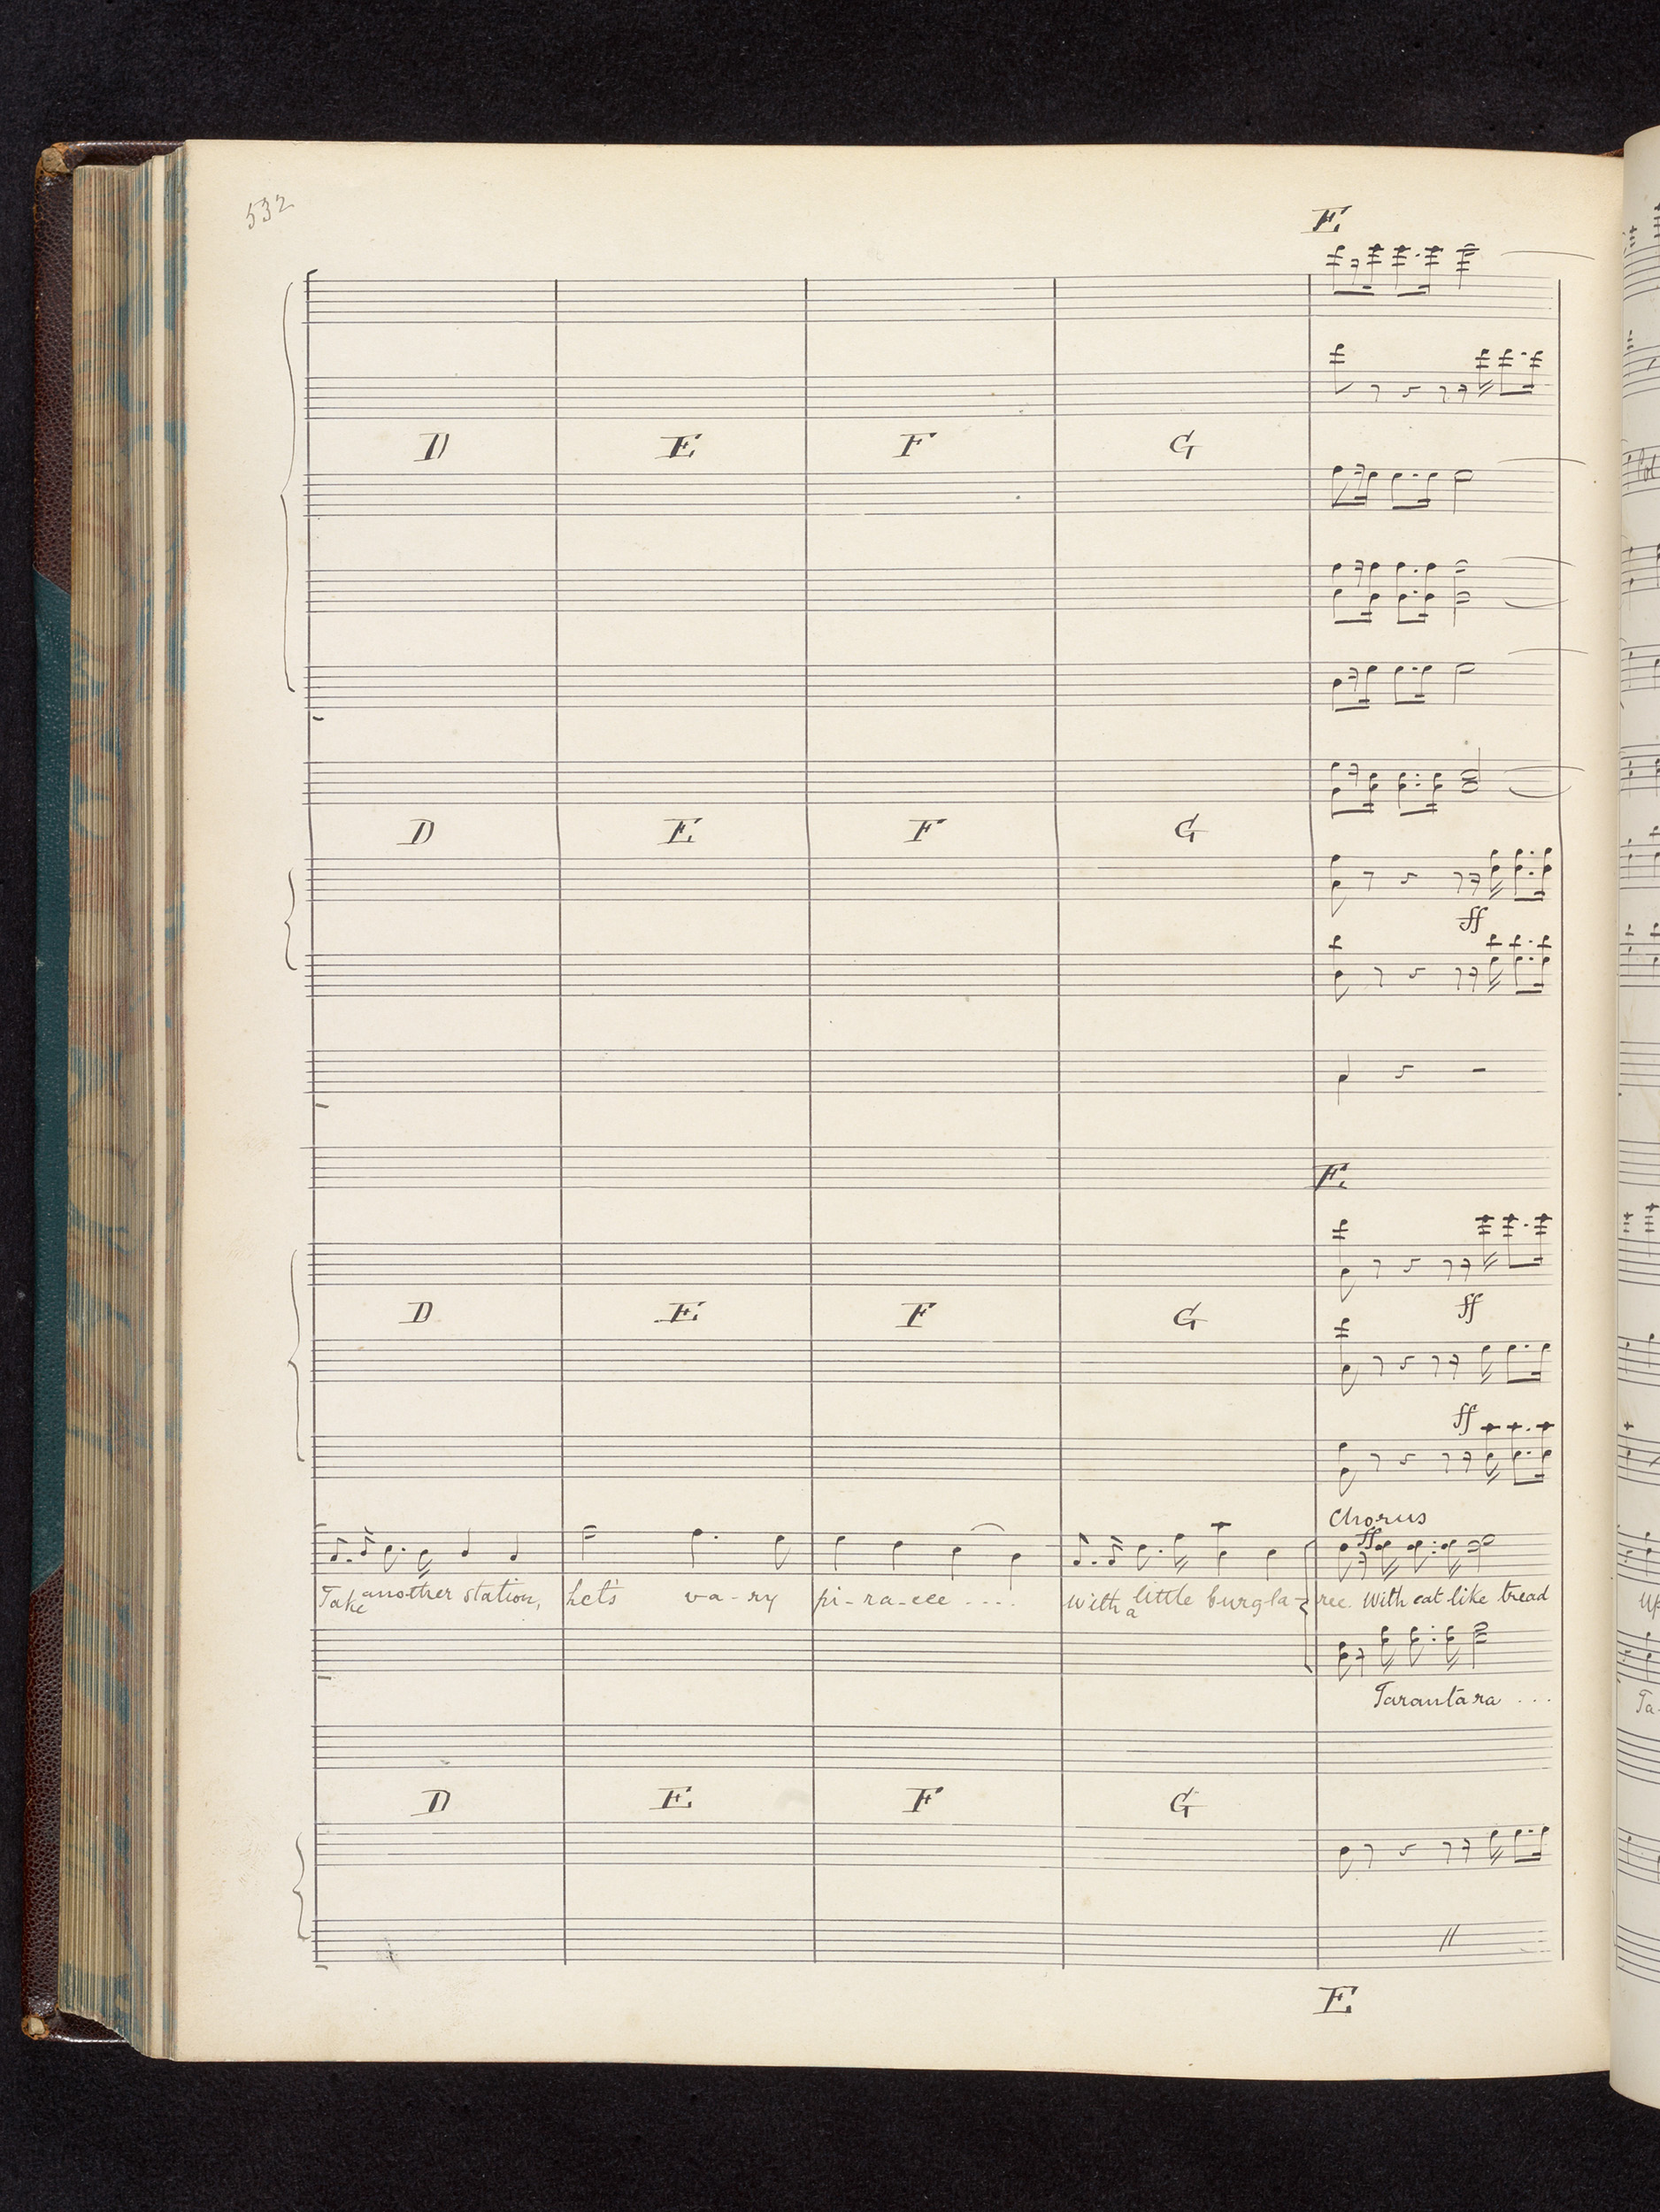 532
E
D E F G
D E F G
ff
E
D E F G
ff
ff
Chorus
ff
Take another station, Let's va-ry pi-ra-cee .... With a little burgla-ree. With cat like tread
Tarantara ...
D E F G
E